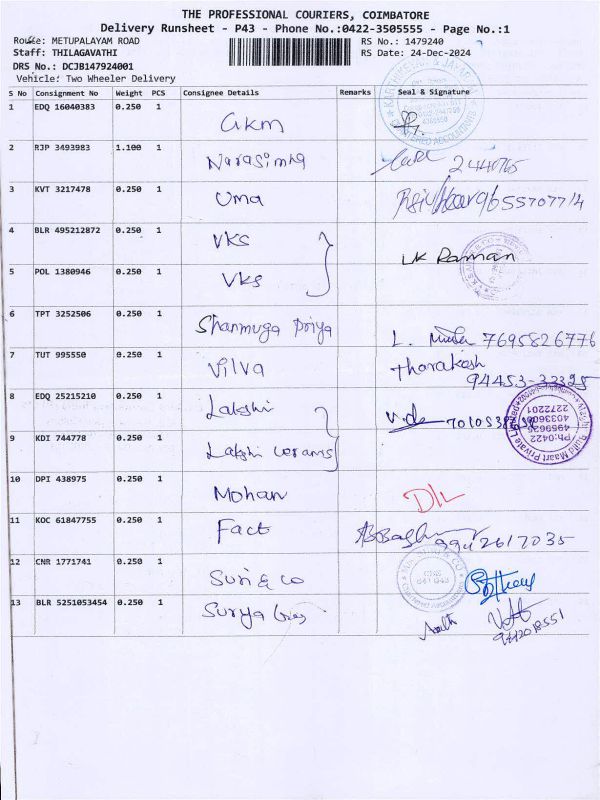 THE PROFESSIONAL COURIERS, COIMBATORE
Delivery Runsheet - P43 - Phone No.:0422-3505555 - Page No.:1
Route: METUPALAYAM ROAD RS No.: 1479240
Staff: THILAGAVATHI RS Date: 24-Dec-2024
DRS No.: DCJB147924001
Vehicle: Two Wheeler Delivery
S No Consignment No Weight PCS Consignee Details Remarks Seal & Signature
1 EDQ 16040383 0.250 1 akm
2 RJP 3493983 1.100 1 Narasimha
3 KVT 3217478 0.250 1 Uma 9655707714
4 BLR 495212872 0.250 1 VKS
LK Raman
5 POL 1380946 0.250 1 VKS
6 TPT 3252506 0.250 1 Shanmuga Priya L. 7695826776
7 TUT 995550 0.250 1 Vilva Tharakash
94453-33325
8 EDQ 25215210 0.250 1 Lakshi
9 KDI 744778 0.250 1 Lakshi
Ph:0422
4959635
4033600
2272201
Build Maart Private Limited
10 DPI 438975 0.250 1 Mohan D/L
11 KOC 61847755 0.250 1 Fact 9942617035
12 CNR 1771741 0.250 1 Suri & co
13 BLR 5251053454 0.250 1 Surya
9442018551